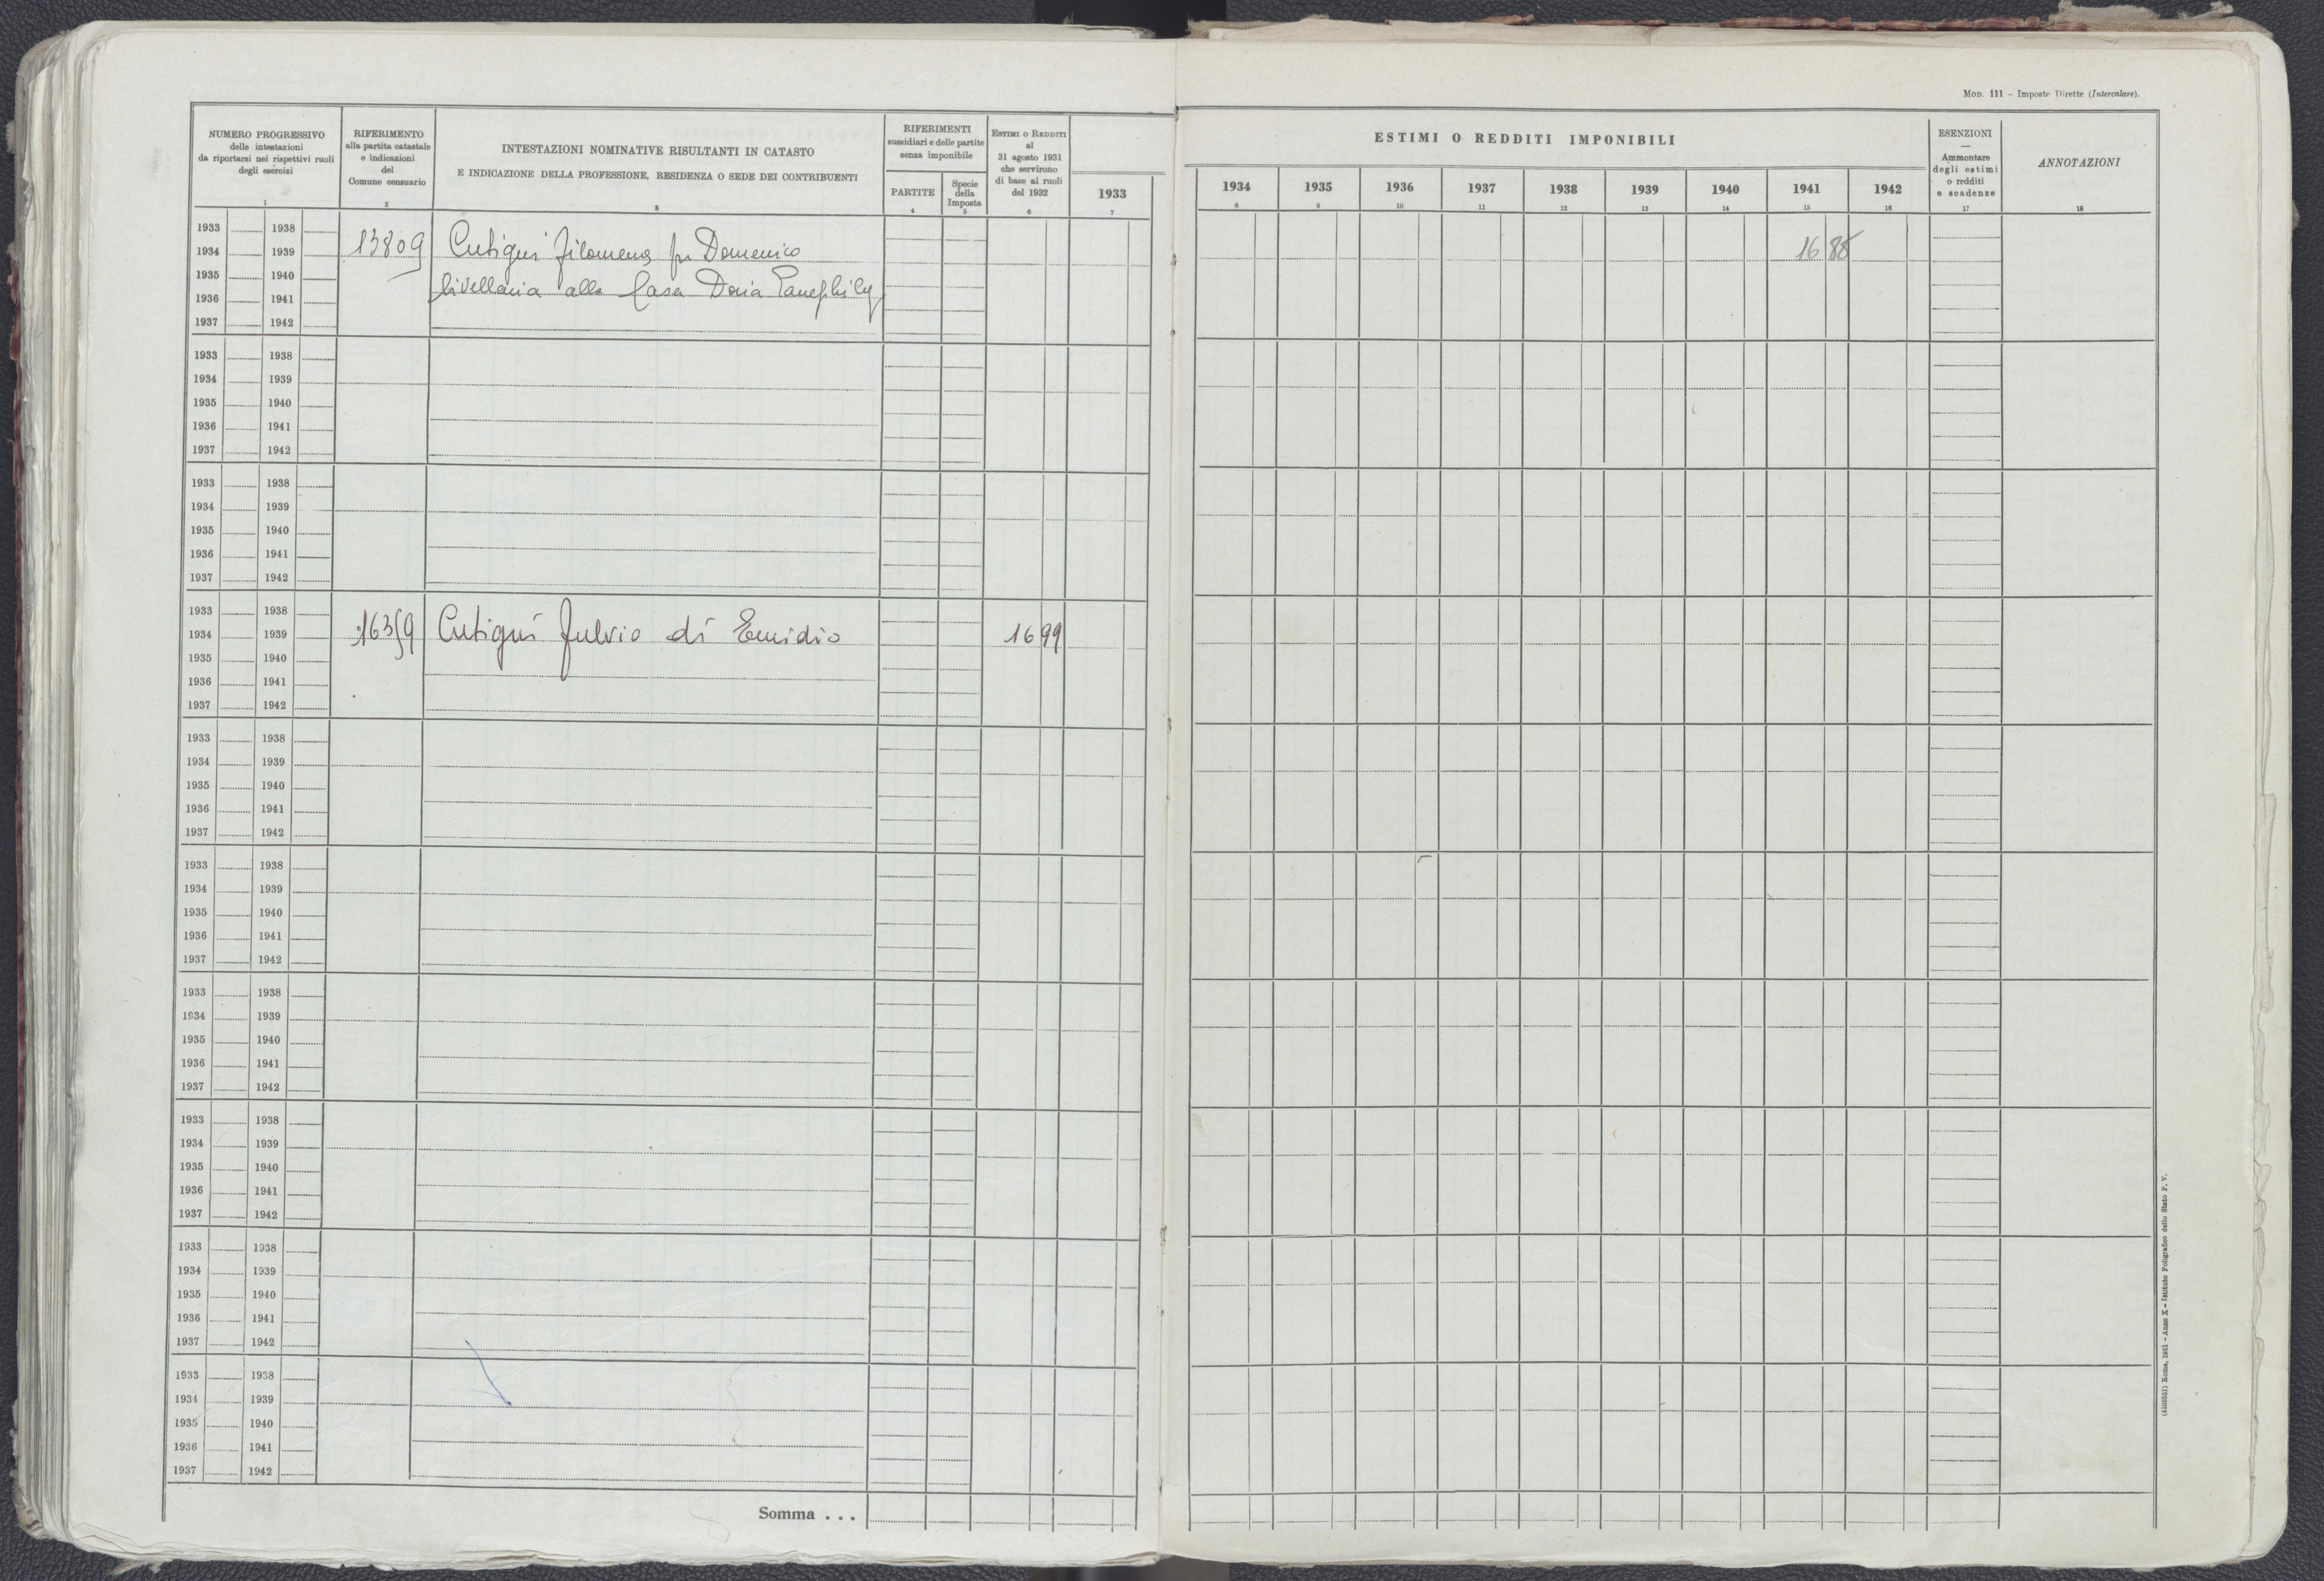 Mod. 111 – Imposte Dirette (Intercalare).
NUMERO PROGRESSIVO
delle intestazioni
da riportarsi nei rispettivi ruoli
degli esercizi
1
RIFERIMENTO
alla partita catastale
e indicazioni
del
Comune censuario
2
INTESTAZIONI NOMINATIVE RISULTANTI IN CATASTO
E INDICAZIONE DELLA PROFESSIONE, RESIDENZA O SEDE DEI CONTRIBUENTI
3
RIFERIMENTI
sussidiari e delle partite
senza imponibile
PARTITE
4
Specie
della
Imposta
5
Estimi o Redditi
al
31 agosto 1931
che servirono
di base ai ruoli
del 1932
6
1933
7
ESTIMI O REDDITI IMPONIBILI
1934 1935 1936 1937 1938 1939 1940 1941 1942
8 9 10 11 12 13 14 15 16
ESENZIONI
—
Ammontare
degli estimi
o redditi
e scadenze
17
ANNOTAZIONI
18
1933 1938
1934 1939 13809 Cutigni Filomena fu Domenico 16 88
1935 1940
1936 1941 livellaria alla Casa Doria
1937 1942
1933 1938
1934 1939
1935 1940
1936 1941
1937 1942
1933 1938
1934 1939
1935 1940
1936 1941
1937 1942
1933 1938
1934 1939 16359 Cutigni Fulvio di Emidio 16 99
1935 1940
1936 1941
1937 1942
1933 1938
1934 1939
1935 1940
1936 1941
1937 1942
1933 1938
1934 1939
1935 1940
1936 1941
1937 1942
1933 1938
1934 1939
1935 1940
1936 1941
1937 1942
1933 1938
1934 1939
1935 1940
1936 1941
1937 1942
1933 1938
1934 1939
1935 1940
1936 1941
1937 1942
1933 1938
1934 1939
1935 1940
1936 1941
1937 1942
Somma . . .
Roma, 1931 – Anno X – Istituto Poligrafico dello Stato P. V.